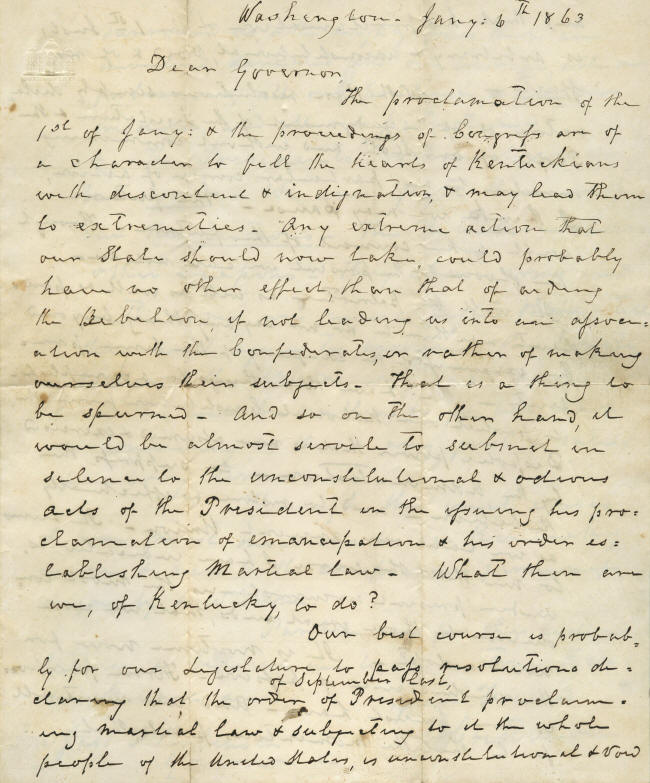 Washington - Jany: 6th 1863
Dear Governor,
The proclamation of the
1st of Jany: & the proceedings of Congress are of
a character to fill the hearts of Kentuckians
with discontent & indignation, & may lead them
to extremities - Any extreme action that
our State should now take, could probably
have no other effect, than that of aiding
the Rebelion, if not leading us into an associ=
ation with the Confederates, or rather of making
ourselves their subjects - That is a thing to
be spurned - And so on the other hand, it
would be almost servile to submit in
silence to the unconstitutional & odious
acts of the President in the issuing his pro=
clamation of emancipation & his order es=
tablishing Martial law - What then are
we, of Kentucky, to do?
Our best course is probab=
ly for our Legislature to pass resolutions de=
of September last,
claring that the order of President proclaim=
ing martial law & subjecting to it the whole
people of the United States, is unconstitutional & void